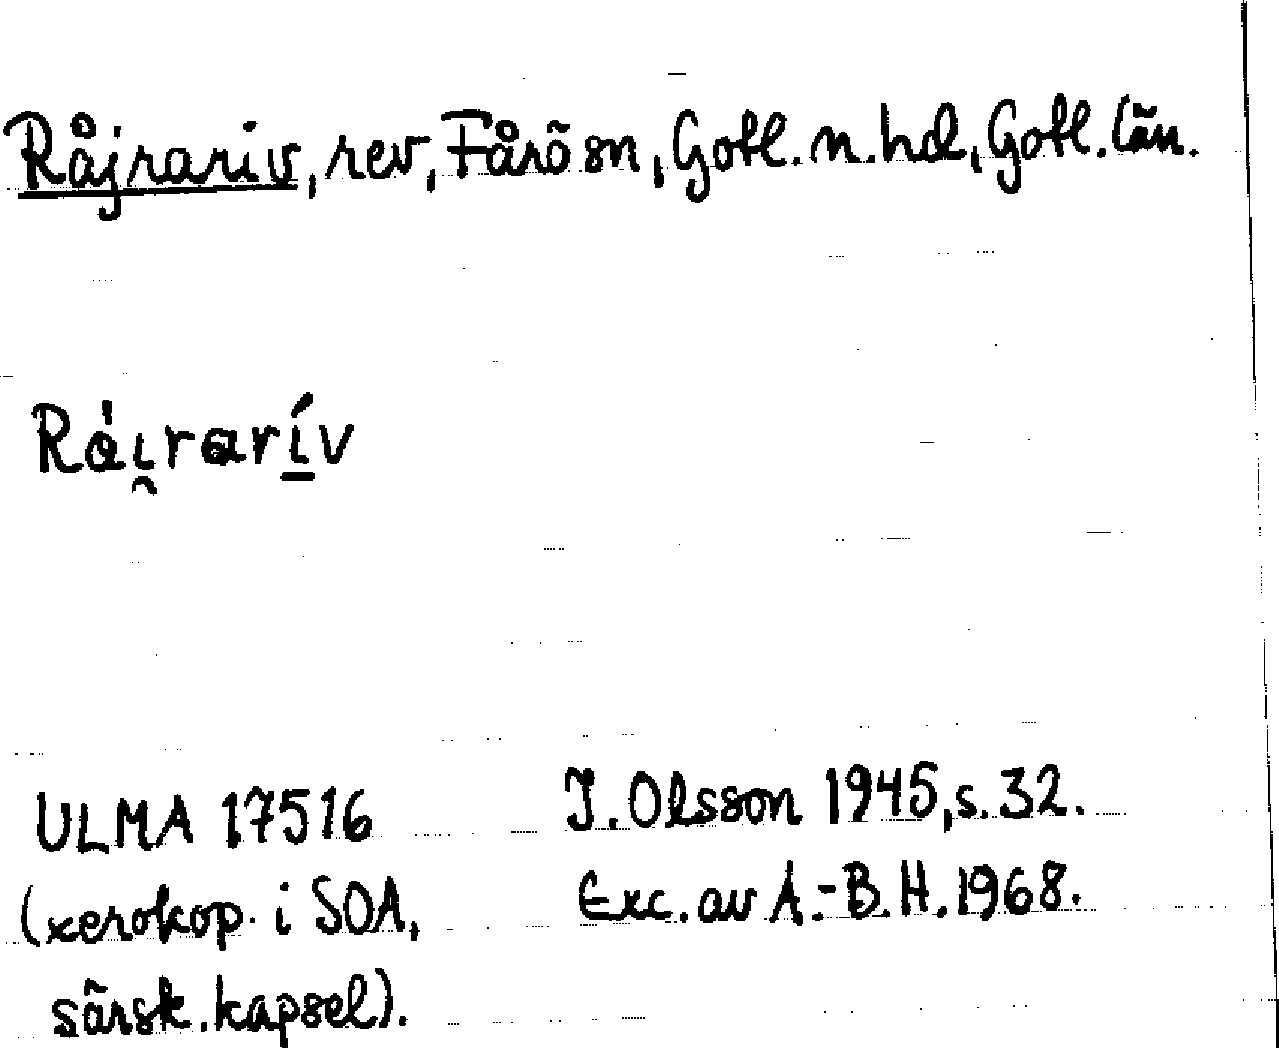 Råjrariv, rev, Fårö sn, Gotl. n. hd, Gotl. län.
Rái̯rarí̲v
ULMA 17516
(xerokop. i SOA,
särsk. kapsel).
I. Olsson 1945, s. 32.
Exc. av A.-B. H. 1968.